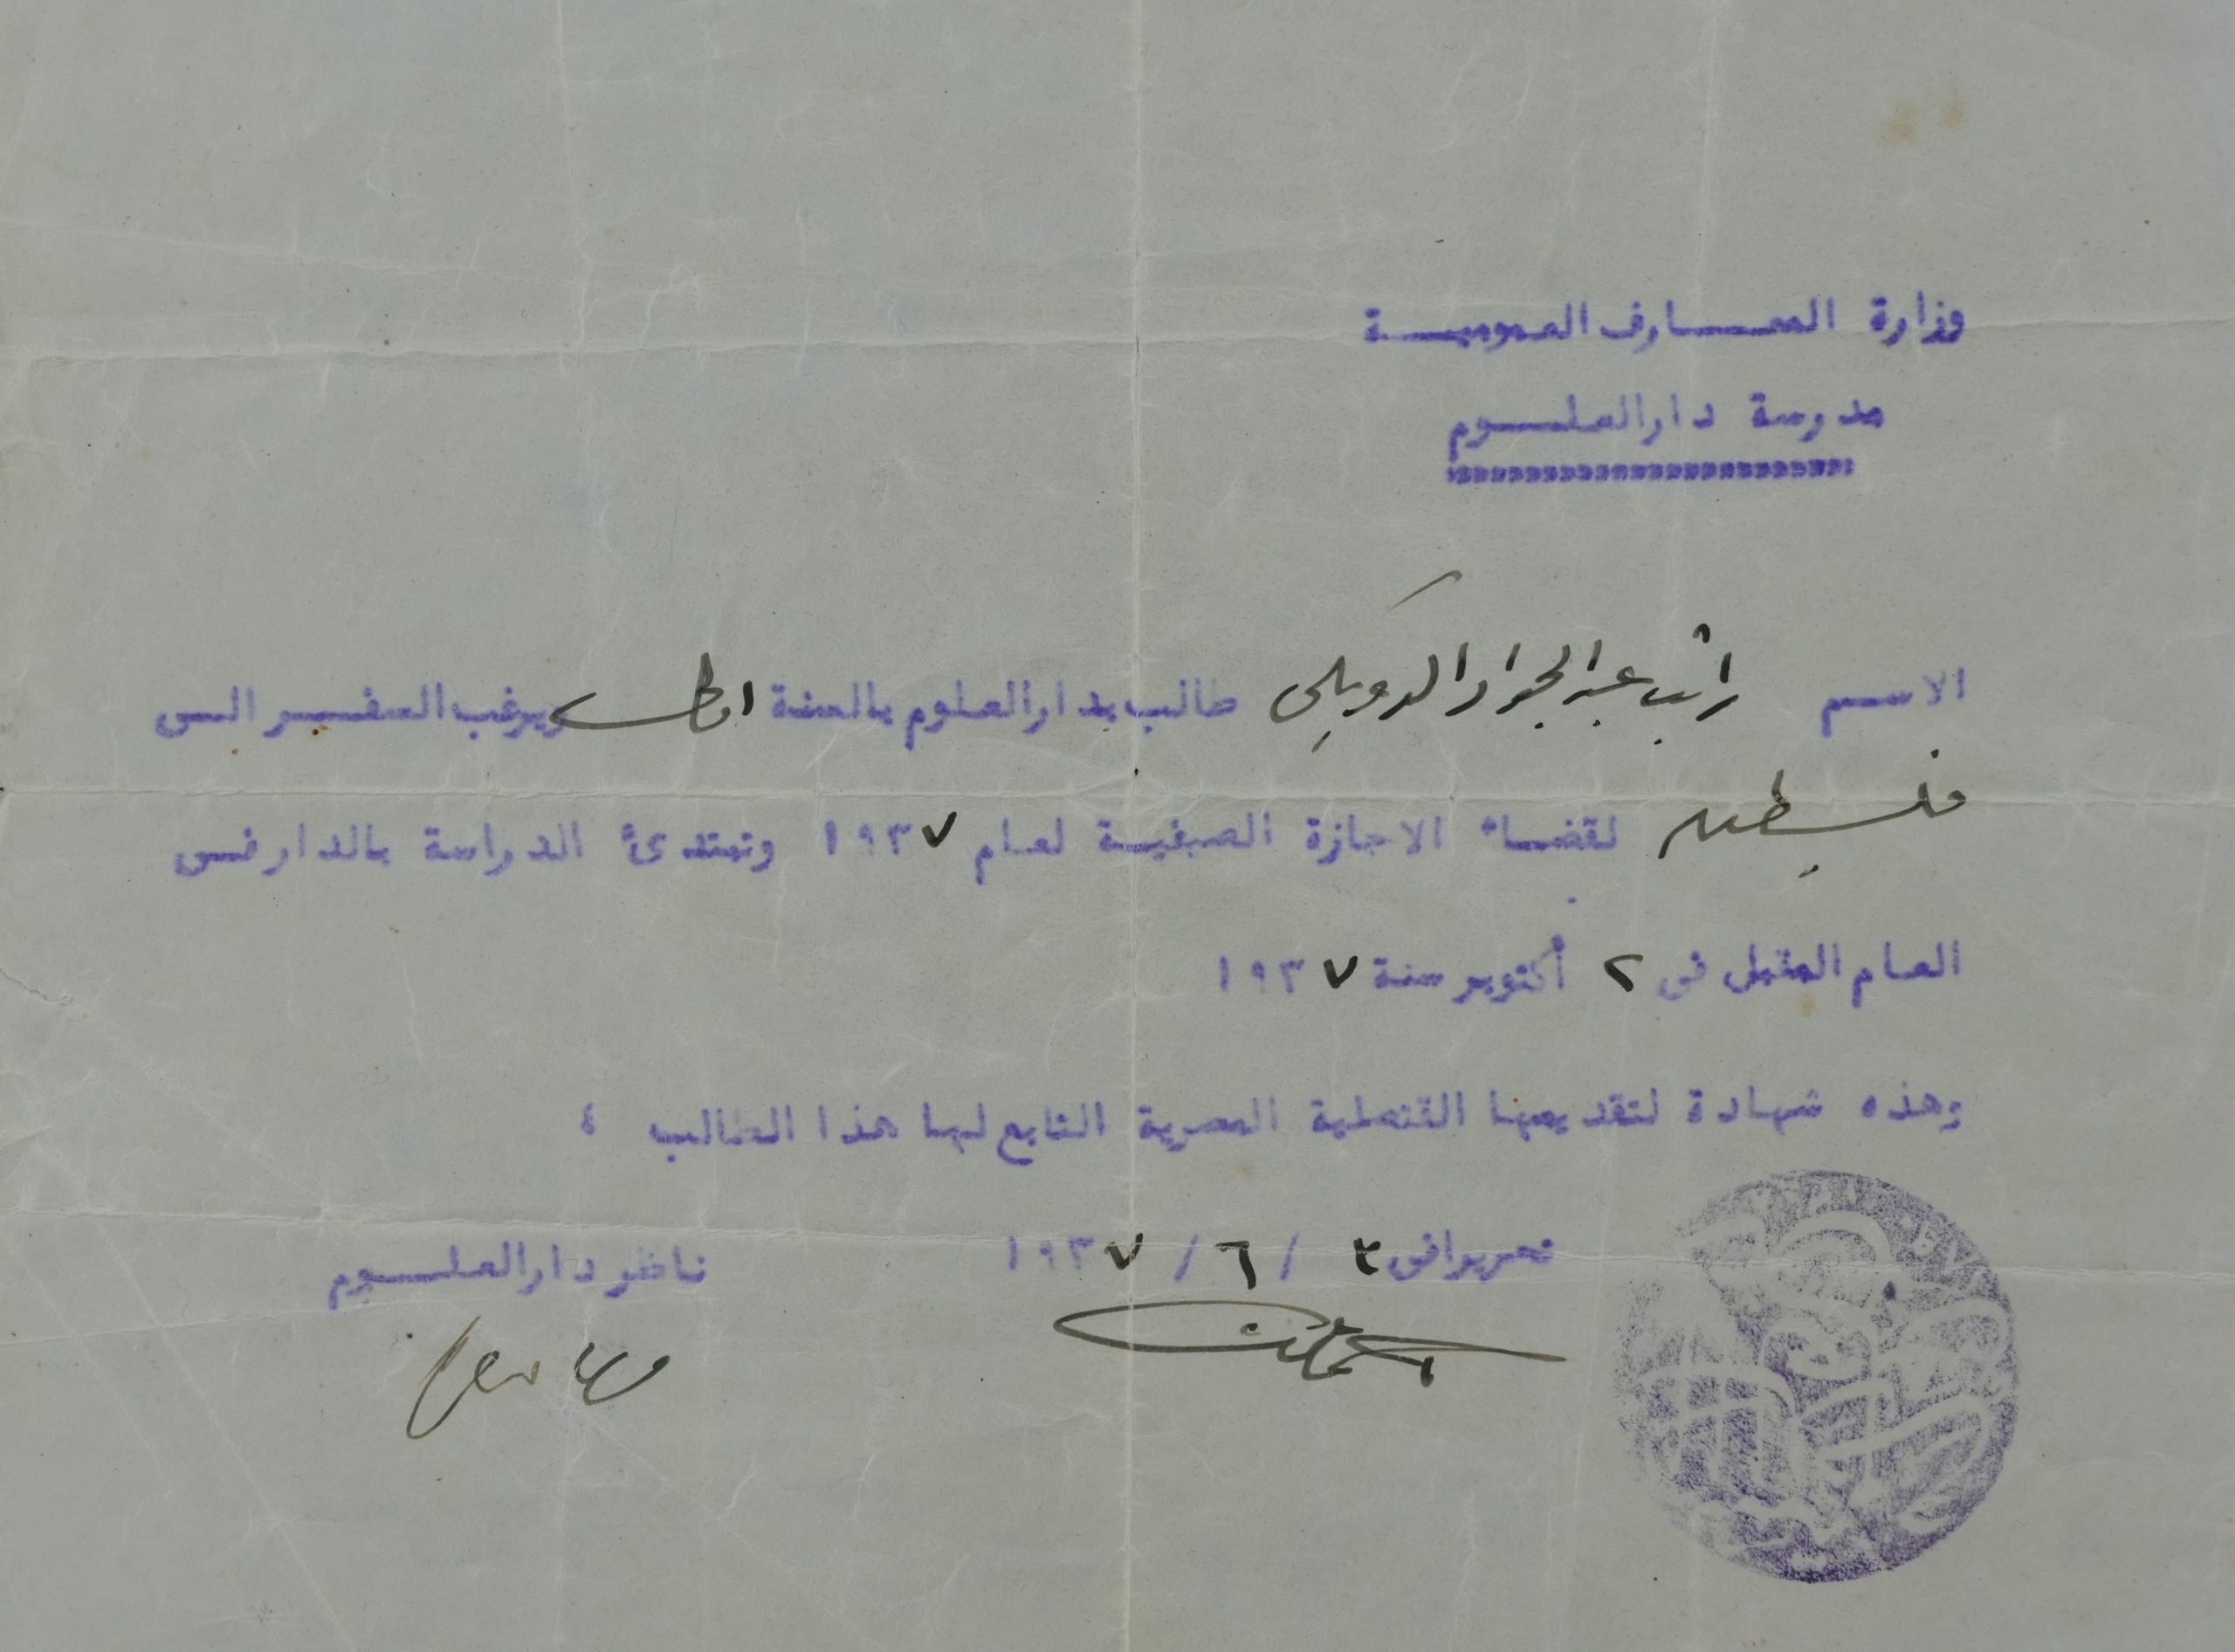 وزارة المعـــارف العموميـــة
مدرسة دار العلــوم
الاسم راتب عبد الجواد الدويكى طالب بدار العلوم بالسنة الأولى ويرغب السفر الى
فلسطين لقضاء الاجازة الصيفية لعام ١٩٣٧ وتبتدئ الدراسة بالدار فى
العام المقبل فى ٢ أكتوبر سنة ١٩٣٧
وهذه شهادة لتقديمها القنصلية المصرية التابع لها هذا الطالب ؛
تحريرا فى ٣ / ٦ / ١٩٣٧
ناظر دار العلــوم